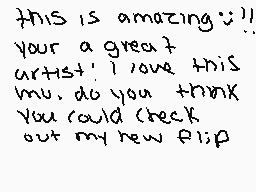 this is amazing :)!!
your a great
artist! I love this
mv. do you think
you could check
out my new flip